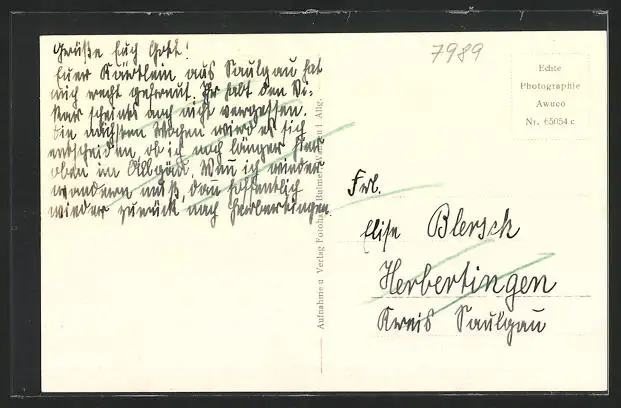 Grüße Euch Gott!
Euer Kärtlein aus Saulgau hat
mich recht gefreut. Ihr habt den Vi-
kar scheints auch nicht vergessen.
Die nächsten Wochen wird es sich
entscheiden, ob ich noch länger hier
oben im Allgäu. Wenn ich wieder
wandern muß, dan hoffentlich
wieder zurück nach Herbertingen.
7989
Echte
Photographie
Awuco
Nr. 65054 c
Aufnahme u Verlag Fotohaus i. Allg.
Frl.
Elise Blersch
Herbertingen
Kreis Saulgau